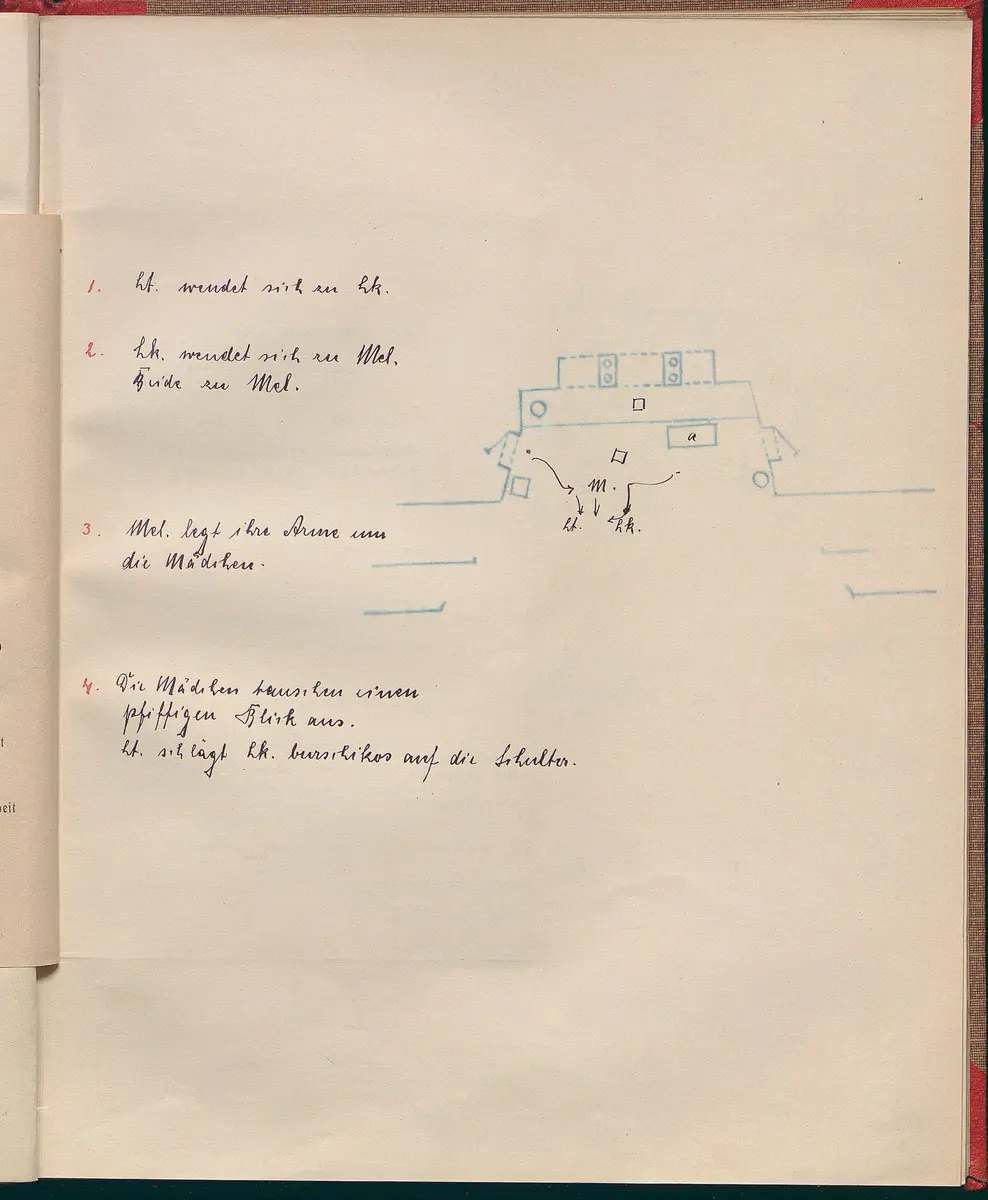 1. ht. wendet sich zu hk.
2. hk. wendet sich zu Mel.
Beide zu Mel.
a
M.
ht. hk.
3. Mel. legt ihre Arme um
die Mädchen.
4. Die Mädchen tauschen einen
pfiffigen Blick aus.
ht. schlägt hk. burschikos auf die Schulter.
t
eit